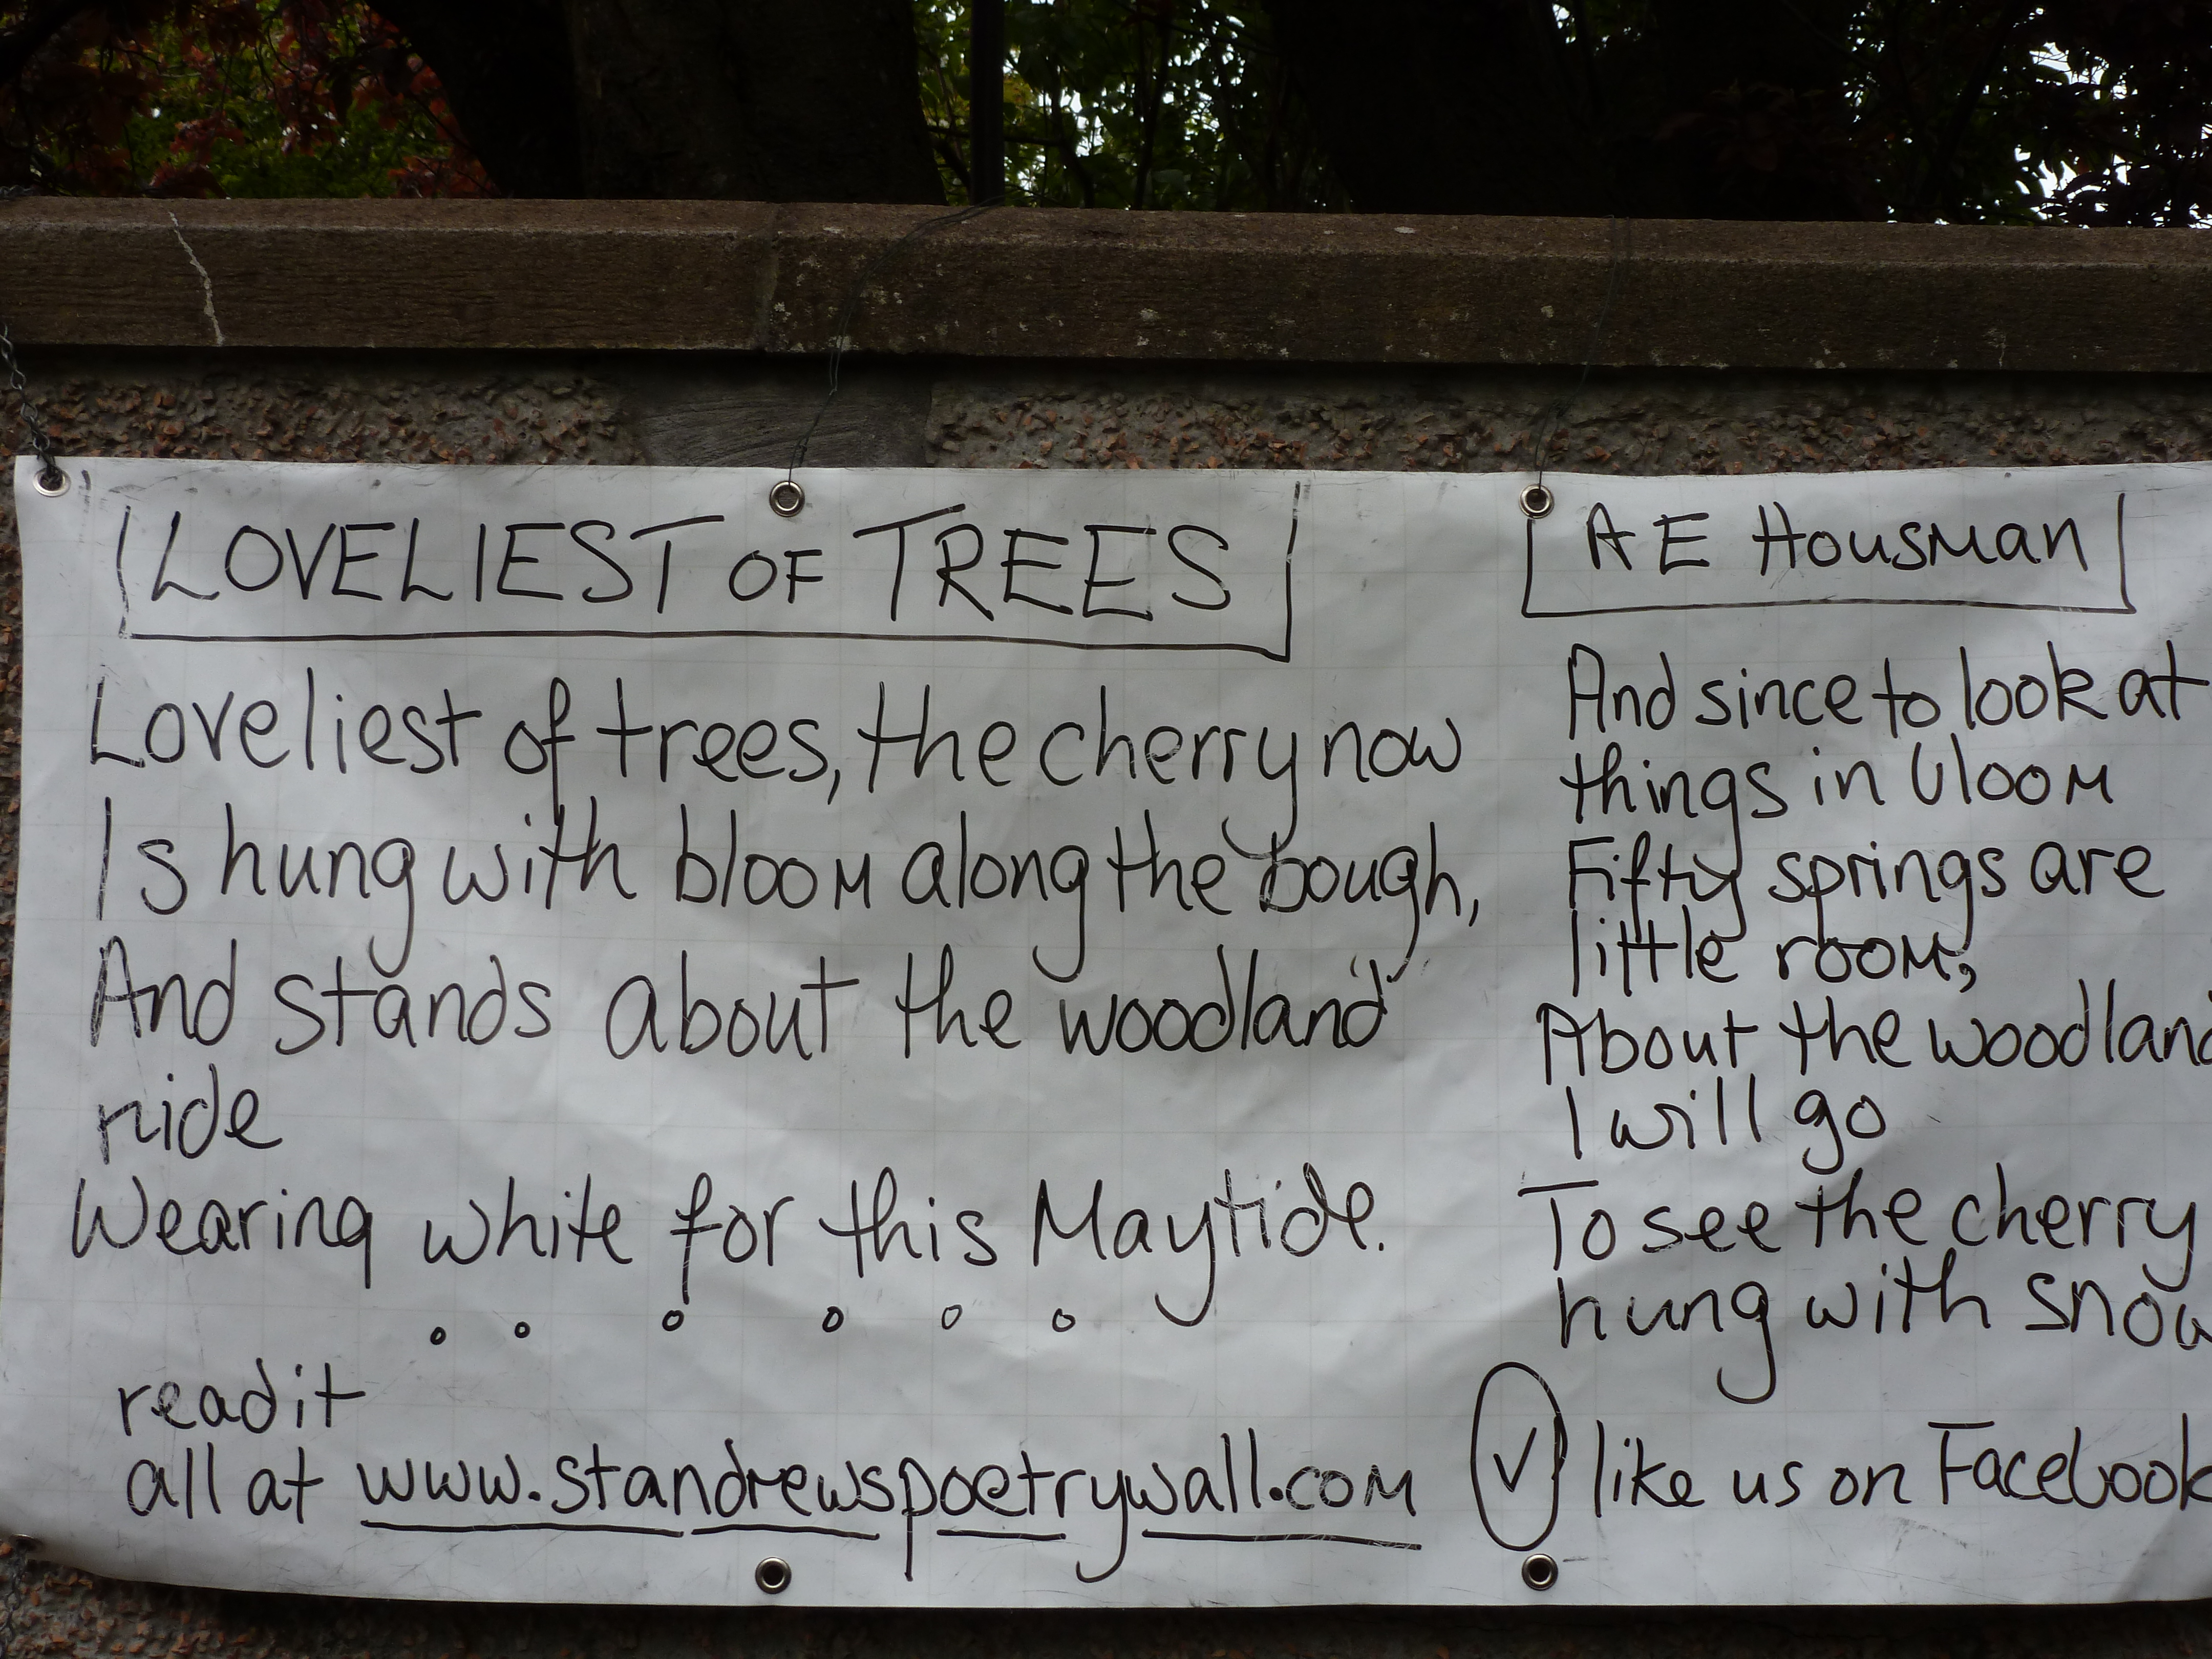 LOVELIEST OF TREES
Loveliest of trees, the cherry now
Is hung with bloom along the bough,
And stands about the woodland
ride
Wearing white for this Maytide.
read it
all at www.standrewspoetrywall.com
A E Housman
And since to look at
things in bloom
Fifty springs are
little room,
About the woodland
I will go
To see the cherry
hung with snow
like us on Facebook